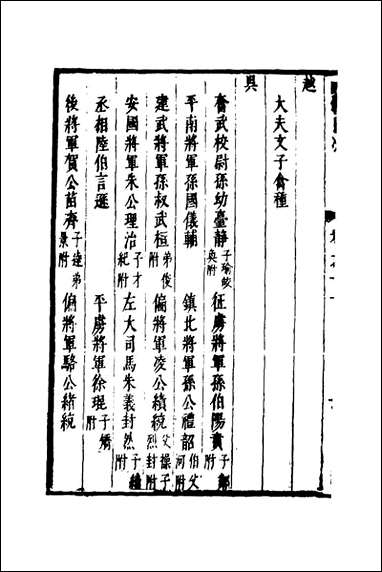 越
大夫文子禽種
吳
奮武校尉孫幼臺靜子瑜皎奐附　征虜將軍孫伯陽賁子鄰附
平南將軍孫國儀輔　鎮北將軍孫公禮韶伯父河附
建武將軍孫叔武桓弟俊附　偏將軍凌公績統父操子烈封附
安國將軍朱公理治子才紀附　左大司馬朱義封然子績附
丞相陸伯言遜　平虜將軍徐琨子矯附
後將軍賀公苗齊子達弟景附　偏將軍駱公緒統